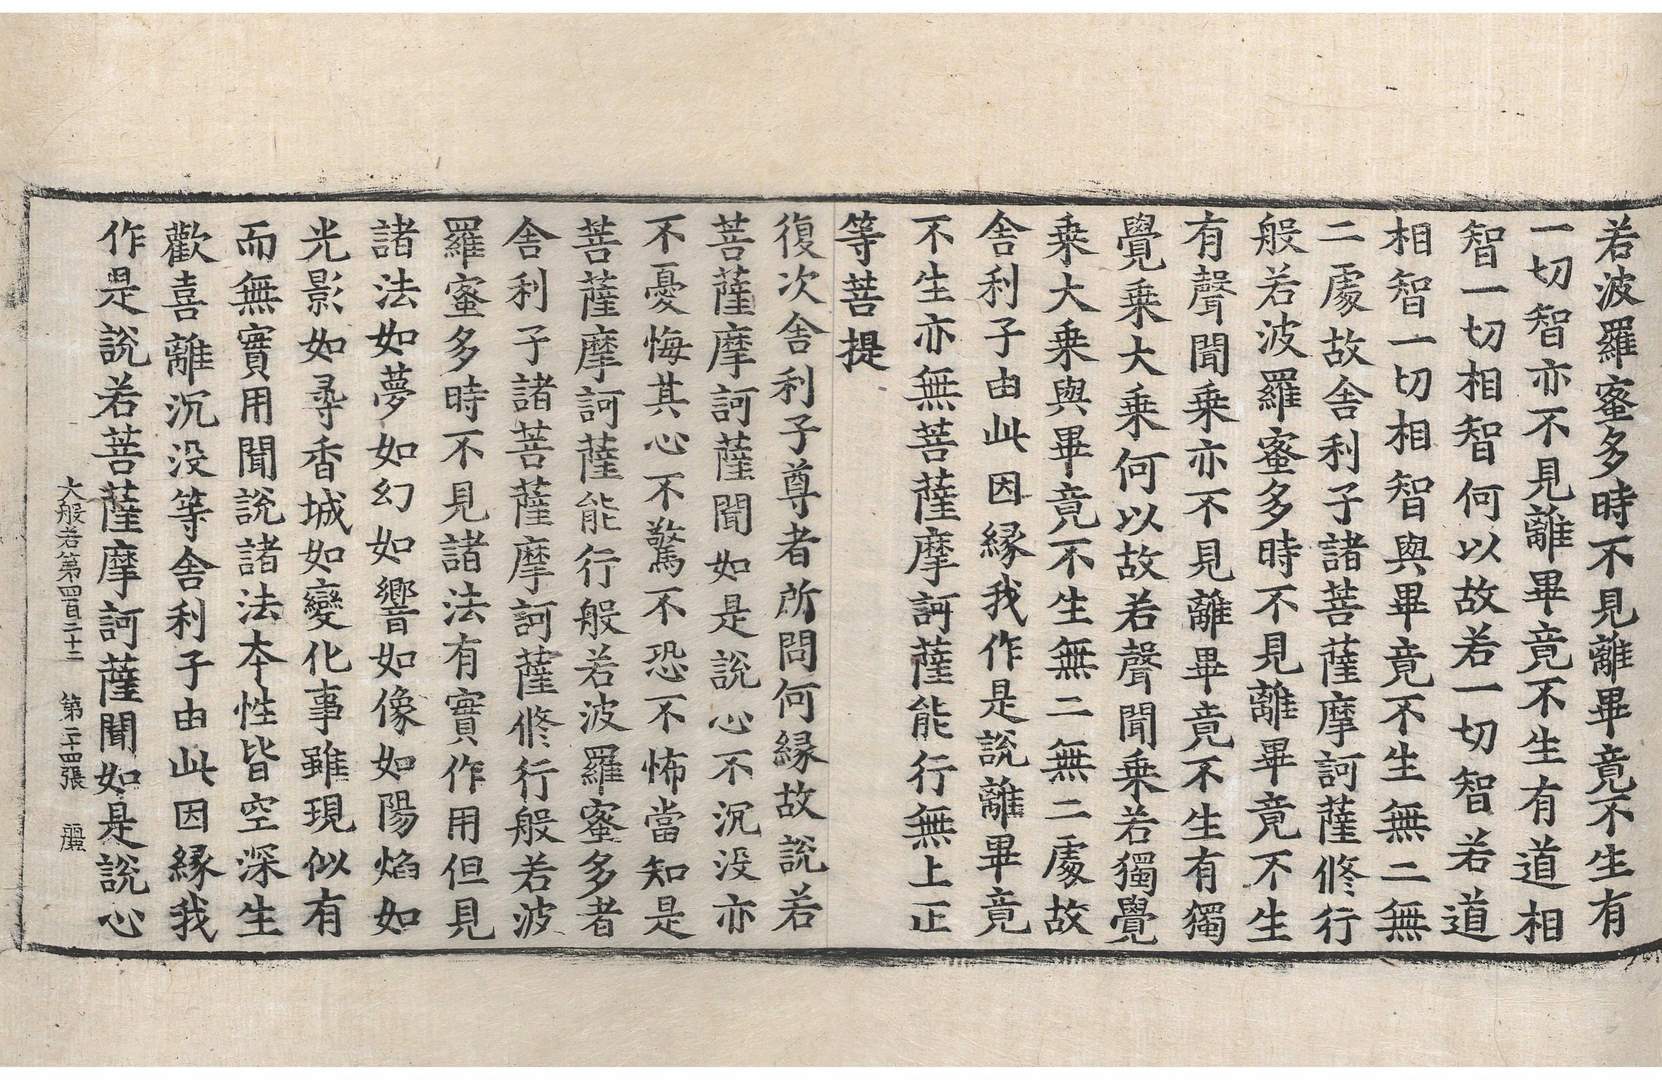 若波羅蜜多時不見離畢竟不生有
一切智亦不見離畢竟不生有道相
智一切相智何以故若一切智若道
相智一切相智與畢竟不生無二無
二處故舍利子諸菩薩摩訶薩修行
般若波羅蜜多時不見離畢竟不生
有聲聞乘亦不見離畢竟不生有獨
覺乘大乘何以故若聲聞乘若獨覺
乘大乘與畢竟不生無二無二處故
舍利子由此因緣我作是說離畢竟
不生亦無菩薩摩訶薩能行無上正
等菩提
復次舍利子尊者所問何緣故說若
菩薩摩訶薩聞如是說心不沉没亦
不憂悔其心不驚不恐不怖當知是
菩薩摩訶薩能行般若波羅蜜多者
舍利子諸菩薩摩訶薩修行般若波
羅蜜多時不見諸法有實作用但見
諸法如夢如幻如響如像如陽焰如
光影如尋香城如變化事雖現似有
而無實用聞說諸法本性皆空深生
歡喜離沉没等舍利子由此因緣我
作是說若菩薩摩訶薩聞如是說心
大般若第四百二十二　第二十四張　麗